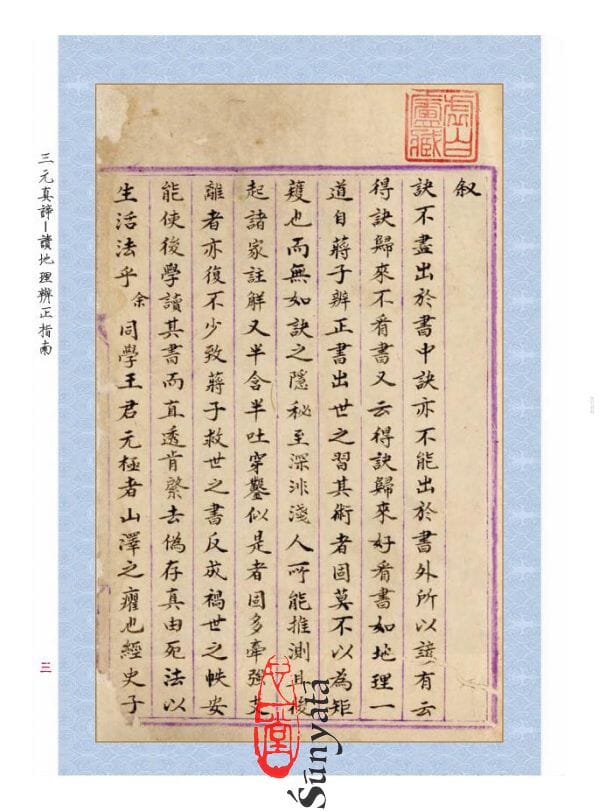 叙
訣不盡出於書中訣亦不能出於書外所以諺有云
得訣歸來不看書又云得訣歸來好看書如地理一
道自蔣子辨正書出世之習其術者固莫不以為矩
矱也而無如訣之隱秘至深非淺人所能推測且後
起諸家註解又半含半吐穿鑿似是者固多牽強支
離者亦復不少致蔣子救世之書反成禍世之帙安
能使後學讀其書而直透肯綮去偽存真由死法以
生活法乎余同學王君元極者山澤之癯也經史子
虛白廬藏
三元真諦—讀地理辨正指南
三
心一堂
Śūnyatā